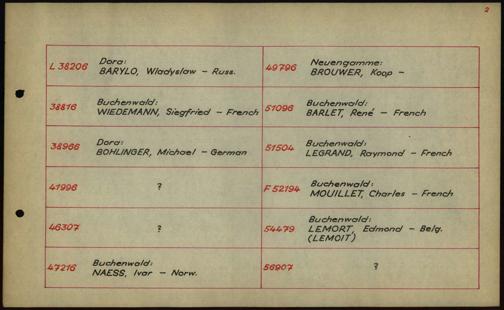 2
L 38206 Dora:
BARYLO, Wladyslaw – Russ.
49796 Neuengamme:
BROUWER, Koop –
38816 Buchenwald:
WIEDEMANN, Siegfried – French
51096 Buchenwald:
BARLET, René – French
38966 Dora:
BOHLINGER, Michael – German
51504 Buchenwald:
LEGRAND, Raymond – French
41996 ?
F 52194 Buchenwald:
MOUILLET, Charles – French
46307 ?
54479 Buchenwald:
LEMORT, Edmond – Belg.
(LEMOIT)
47216 Buchenwald:
NAESS, Ivar – Norw.
56907 ?